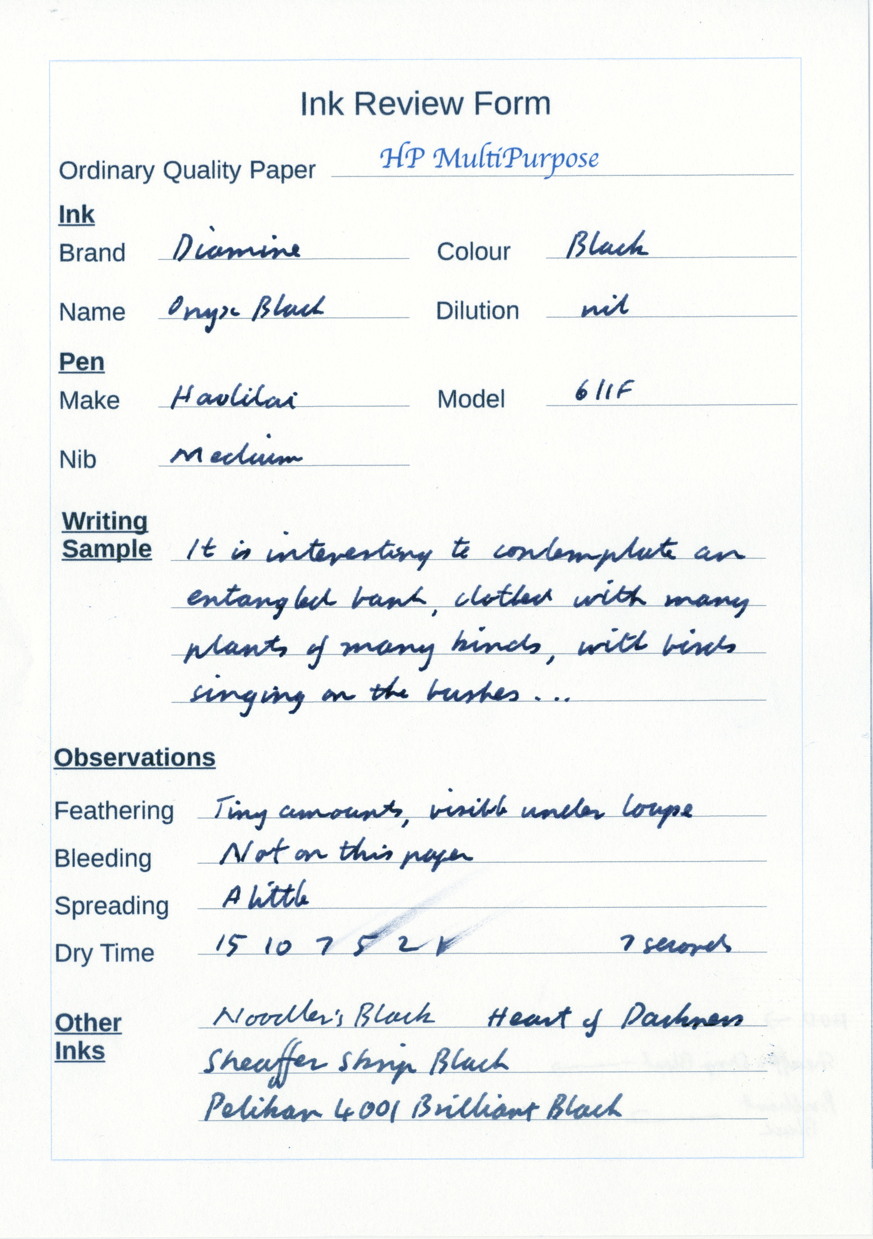 Ink Review Form
Ordinary Quality Paper HP MultiPurpose
Ink
Brand Diamine Colour Black
Name Onyx Black Dilution nil
Pen
Make Haolilai Model 611F
Nib Medium
Writing
Sample It is interesting to contemplate an
entangled bank, clothed with many
plants of many kinds, with birds
singing on the bushes ...
Observations
Feathering Tiny amounts, visible under loupe
Bleeding Not on this paper
Spreading A little
Dry Time 15 10 7 5 2 1 7 seconds
Other Noodler's Black Heart of Darkness
Inks Sheaffer Skrip Black
Pelikan 4001 Brilliant Black